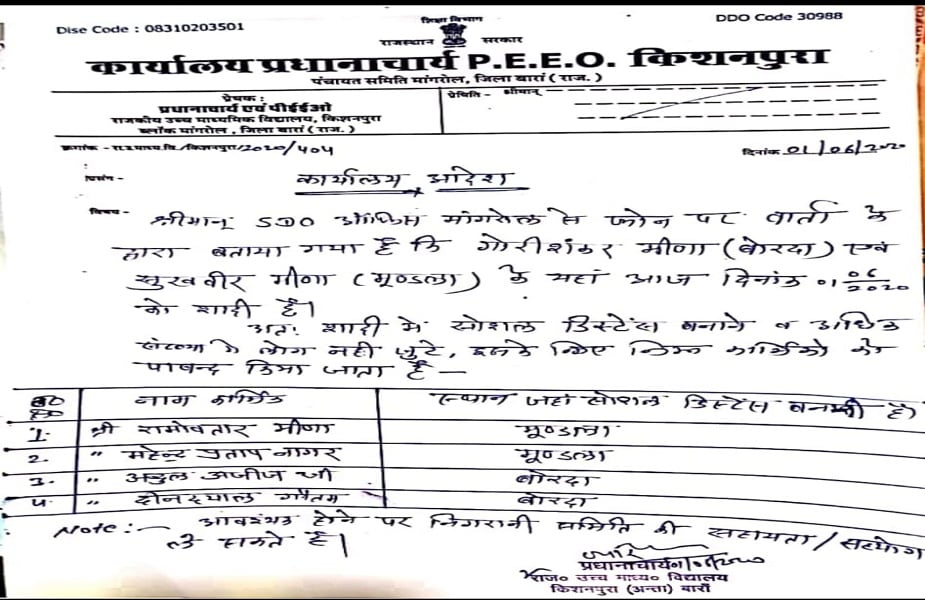 Dise Code : 08310203501
DDO Code 30988
शिक्षा विभाग
राजस्थान सरकार
कार्यालय प्रधानाचार्य P.E.E.O. किशनपुरा
पंचायत समिति मांगरोल, जिला बारां ( राज. )
प्रेषक :
प्रधानाचार्य एवं पीईईओ
राजकीय उच्च माध्यमिक विद्यालय, किशनपुरा
ब्लॉक मांगरोल , जिला बारां ( राज. )
प्रेषिति - श्रीमान्
क्रमांक - रा.उ.माध्य.वि./किशनपुरा/2020/404
दिनांक 01/06/2020
प्रसंग -
कार्यालय आदेश
विषय - श्रीमान् SDO ऑफिस मांगरोल से फोन पर वार्ता के
द्वारा बताया गया है कि गोरीशंकर मीणा (बोरदा) एवं
सुखवीर मीणा (मूण्डला) के यहां आज दिनांक 01 06/2020
को शादी है।
अतः शादी में सोशल डिस्टेंस बनाने व अधिक
संख्या में लोग नही जुटे, इसके लिए निम्न कार्मिको को
पाबन्द किया जाता है –
नाम कार्मिक स्थान जहां सोशल डिस्टेंस बनानी है।
1. श्री रामोवतार मीणा मूण्डला
2. " महेन्द्र प्रताप नागर मूण्डला
3. " अब्दुल अजीज जी बोरदा
4 " दीनदयाल गौतम बोरदा
Note :– आवश्यक होने पर निगरानी समिति की सहायता/सहयोग
ले सकते है।
प्रधानाचार्य
राज० उच्च माध्य० विद्यालय
किशनपुरा (अन्ता) बारां